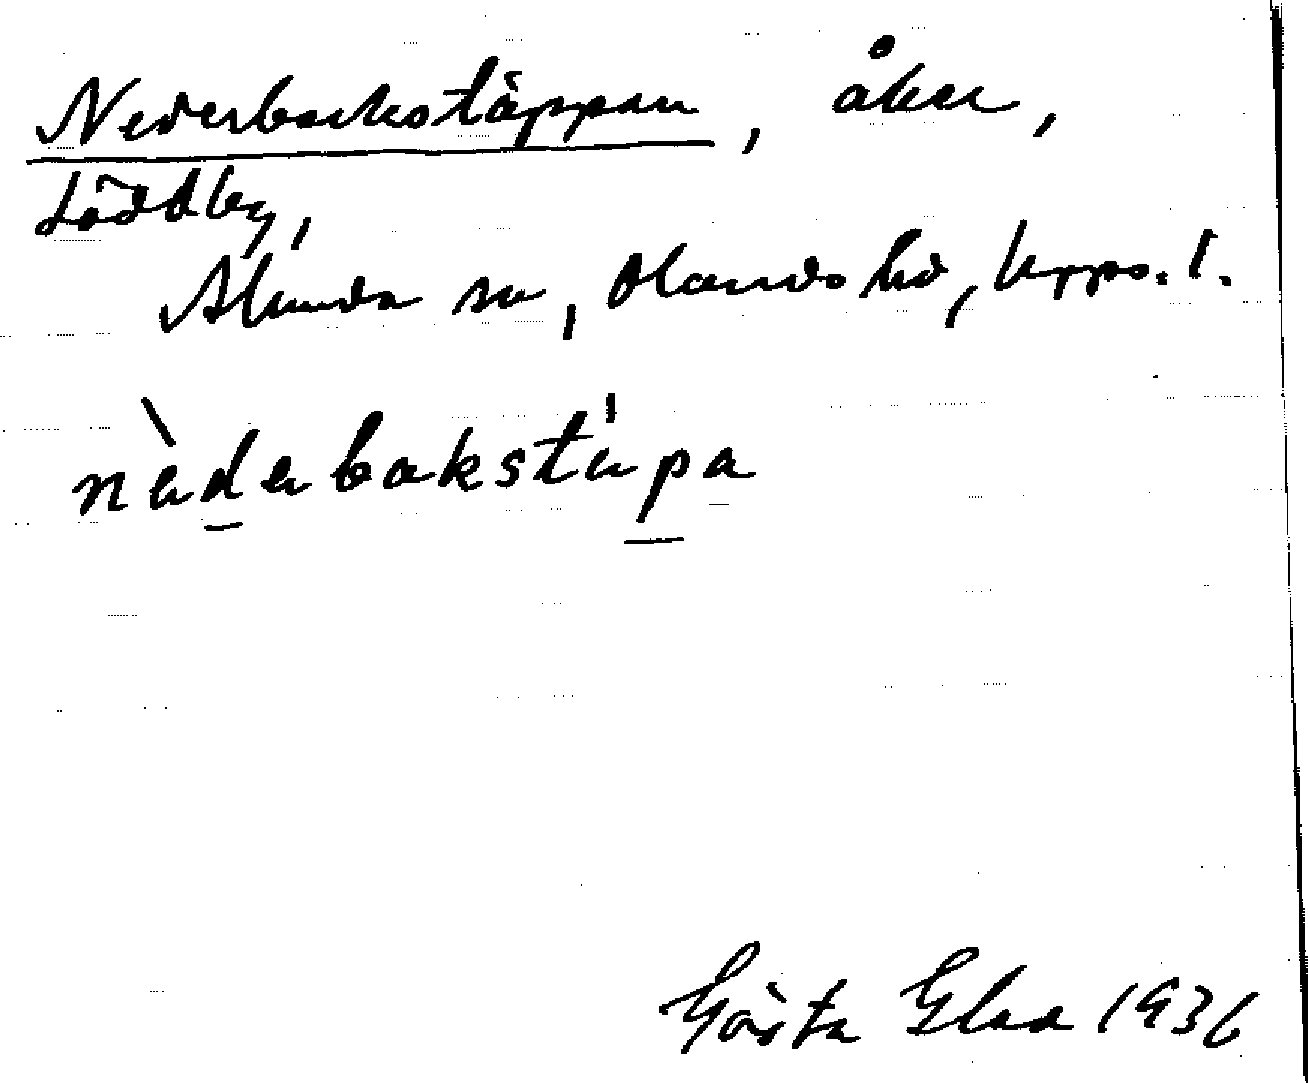 Nederbackstäppan, åker,
Löddby,
Alunda sn, Olands hd, Upps. l.
nèderbakstäpa
Gösta Glad 1936